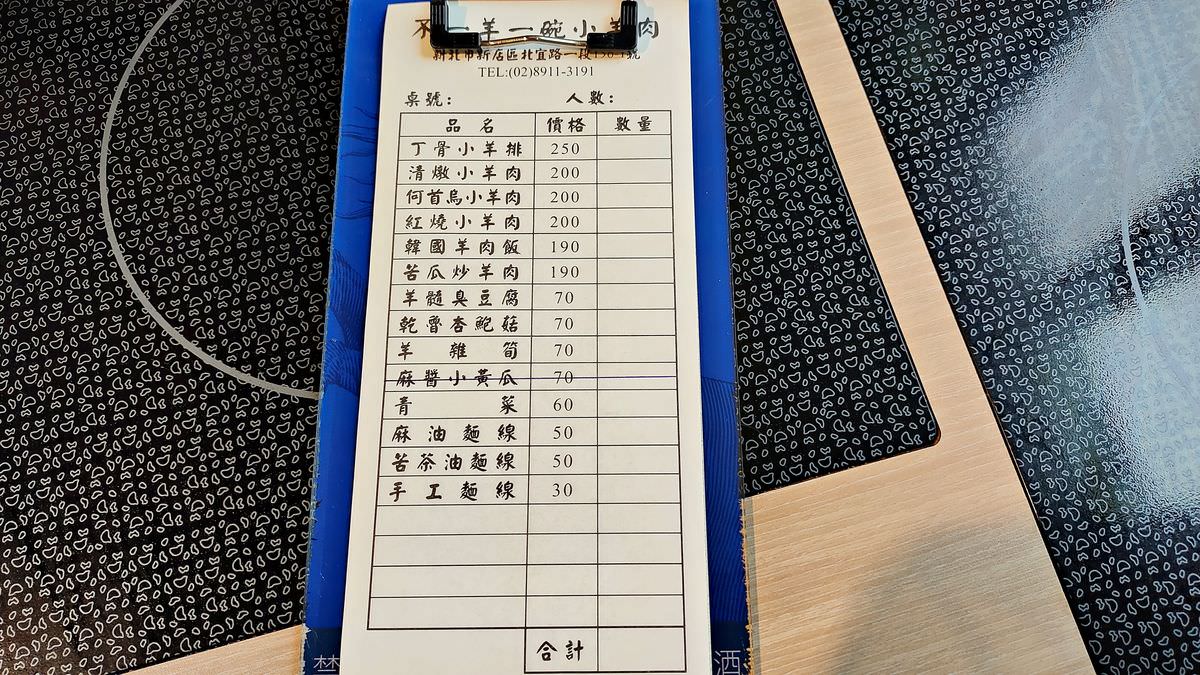 不一羊一碗小羊肉
新北市新店區北宜路一段
TEL:(02)8911-3191
桌號: 人數:
品名 價格 數量
丁骨小羊排 250
清燉小羊肉 200
何首烏小羊肉 200
紅燒小羊肉 200
韓國羊肉飯 190
苦瓜炒羊肉 190
羊髓臭豆腐 70
乾魯杏鮑菇 70
羊雜筍 70
麻醬小黃瓜 70
青菜 60
麻油麵線 50
苦茶油麵線 50
手工麵線 30
合計
酒